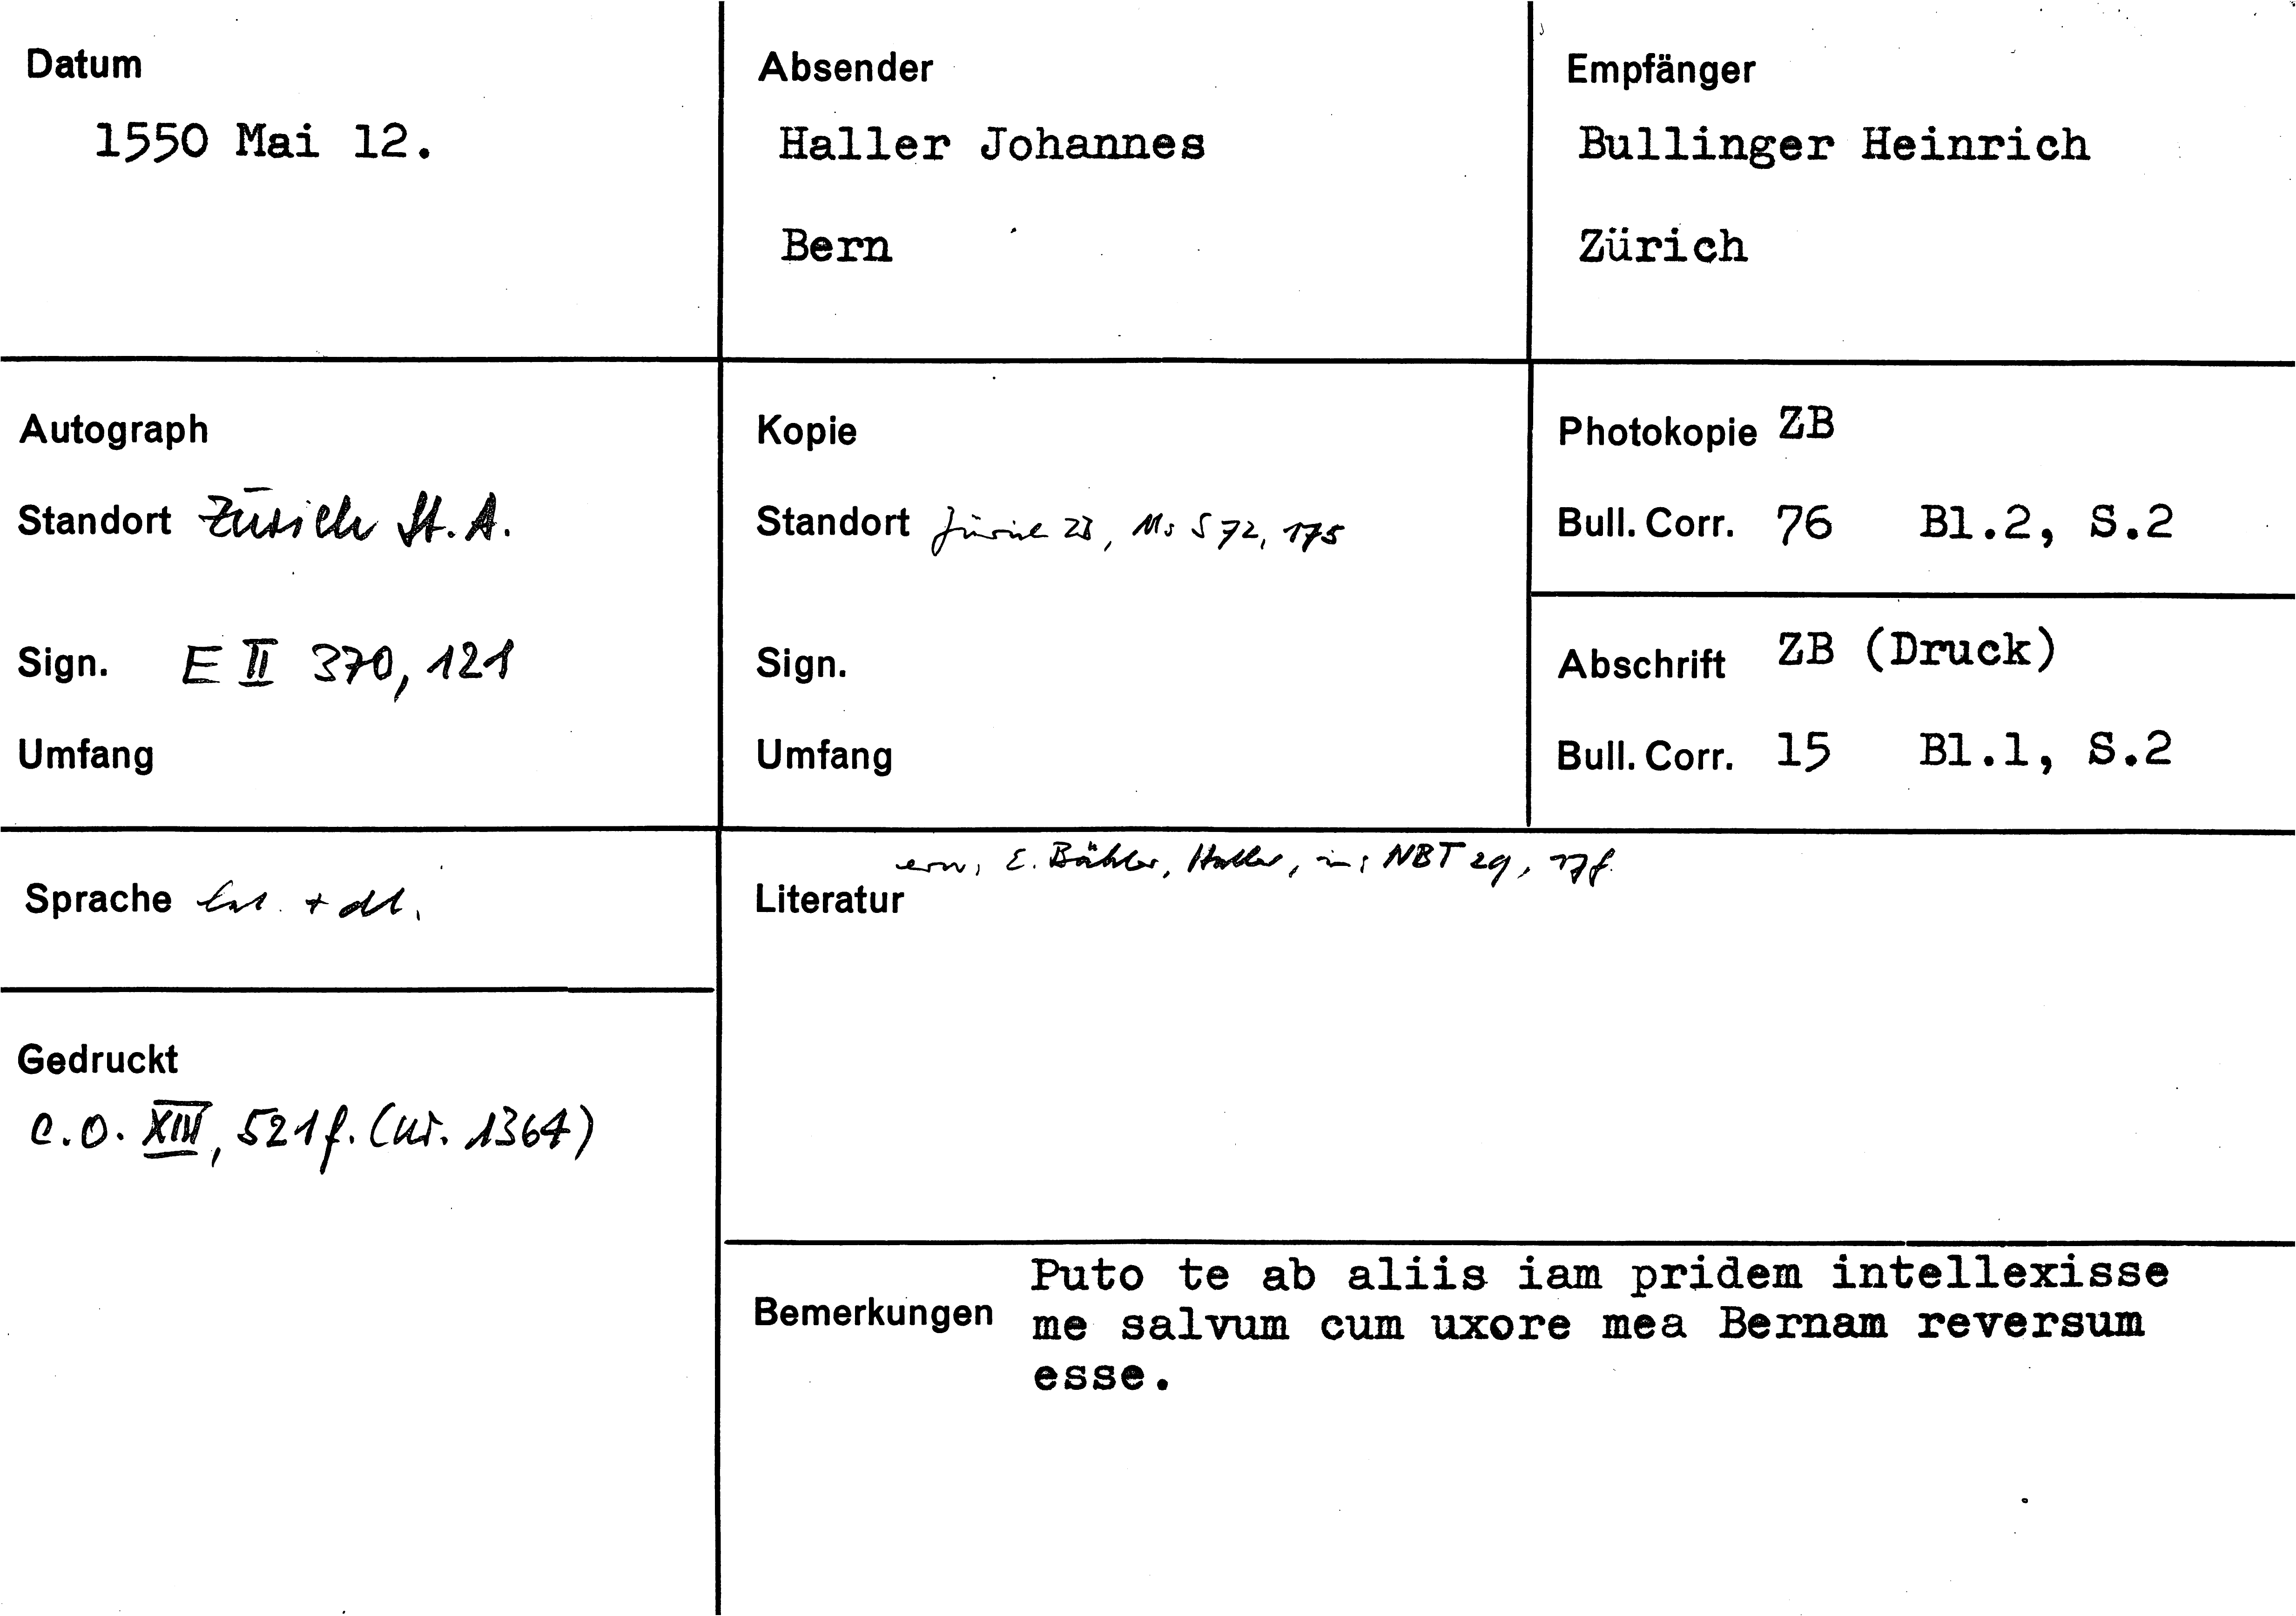 Datum
1550 Mai 12.
Absender
Haller Johannes
Bern
Empfänger
Bullinger Heinrich
Zürich
Autograph
Standort Zürich St. A.
Sign. E II 370, 121
Umfang
Kopie
Standort Zürich ZB, Ms S 72, 175
Sign.
Umfang
Photokopie ZB
Bull. Corr. 76 Bl.2, S.2
Abschrift ZB (Druck)
Bull. Corr. 15 Bl.1, S.2
Sprache lat. + dt.
Gedruckt
C.O. XIII, 521f. (Nr. 1364)
erw, E. Bähler, Haller, in: NBT 29, 17f.
Literatur
Bemerkungen
Puto te ab aliis iam pridem intellexisse
me salvum cum uxore mea Bernam reversum
esse.